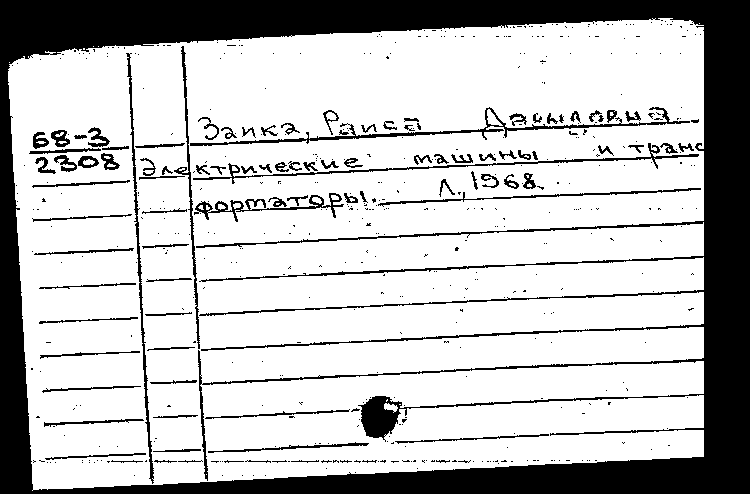 68-3
2308
Заика, Раиса Даниловна
Электрические машины и транс
форматоры. Л., 1968.